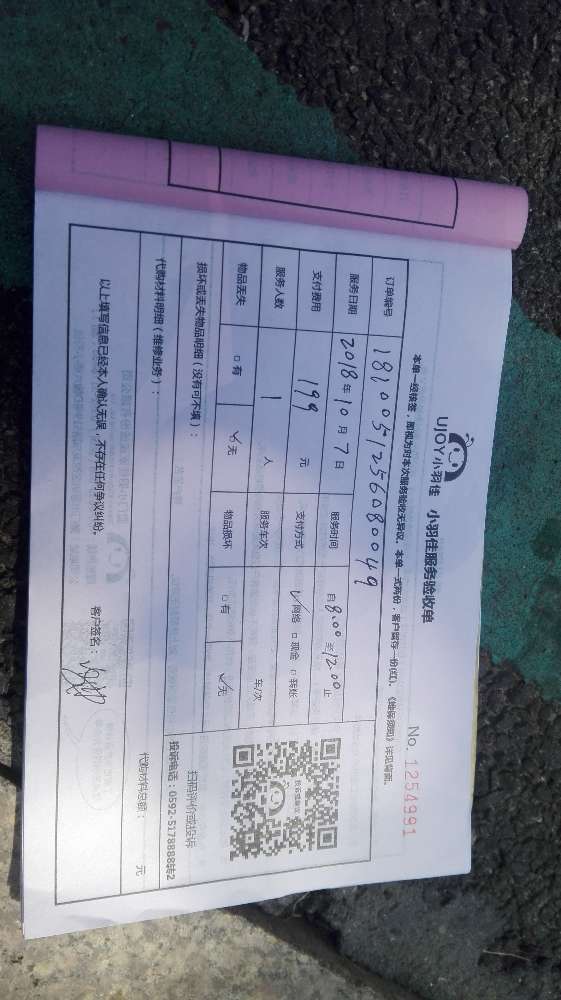 UJOY小羽佳 小羽佳服务验收单
No. 1254991
本单一经核签，即视为对本次服务验收无异议。本单一式两份，客户留存一份(红)。《维保须知》详见背面。
订单编号 1810051256080049
服务日期 2018年10月7日 服务时间 自8:00至12:00止
支付费用 199 元 支付方式 ☑网络 □现金 □转账
服务人数 1 人 服务车次 车/次
物品丢失 □有 ☑无 物品损坏 □有 ☑无
扫码评价或投诉
投诉电话：0592-5178888转2
损坏或丢失物品明细（没有可不填）：
代购材料明细（维修业务）：
代购材料总额： 元
以上填写信息已经本人确认无误，不存在任何争议纠纷。
客户签名：